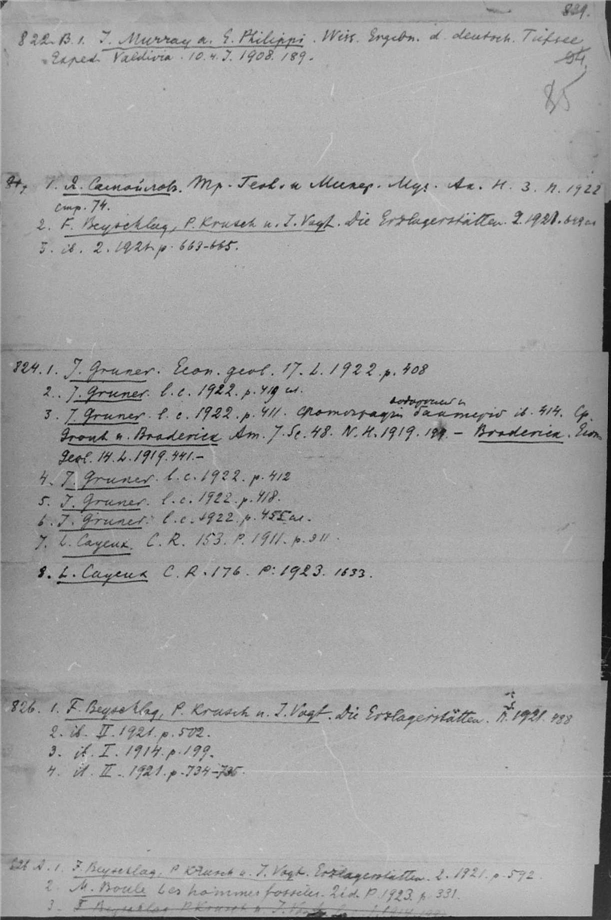 829.
822. B. 1. J. Murray a. E. Philippi. Wiss. Ergebn. d. deutsch. Tiefsee
Exped. Valdivia. 10. 4. J. 1908. 189.
85
1. Я. Самойлов. Тр. Геол. и Минер. Муз. Ак. Н. 3. П. 1922
стр. 74.
2. F. Beyschlag, P. Krusch u. J. Vogt. Die Erzlagerstätten. 2. 1921.
3. ib. 2. 1921. p. 663-665.
824. 1. J. Gruner. Econ. geol. 17. L. 1922. p. 408
2. J. Gruner. l. c. 1922. p. 419
3. J. Gruner. l. c. 1922. p. 411. фотографии водорослей и бактерий ib. 414. Ср.
Grout u. Broderick Am. J. Sc. 48. N. H. 1919. — Broderick. Econ.
Geol. 14. L. 1919. 441.-
4. J. Gruner. l. c. 1922. p. 412
5. J. Gruner. l. c. 1922. p. 418.
6. J. Gruner. l. c. 1922. p.
7. L. Cayeux. C. R. 153. P. 1911. p. 911.
8. L. Cayeux C. R. 176. P. 1923. 1633.
826. 1. F. Beyschlag, P. Krusch u. J. Vogt. Die Erzlagerstätten. II. 1921. 488
2. ib. II. 1921. p. 502.
3. ib. I. 1914. p. 199.
4. ib. II. 1921. p. 734-735.
1. F. Beyschlag, P. Krusch u. J. Vogt. Erzlagerstätten. 2. 1921. p. 592
2. M. Boule. Les hommes fossiles. 2 éd. P. 1923. p. 331.
3. F. Beyschlag P. Krusch u. J. Vogt